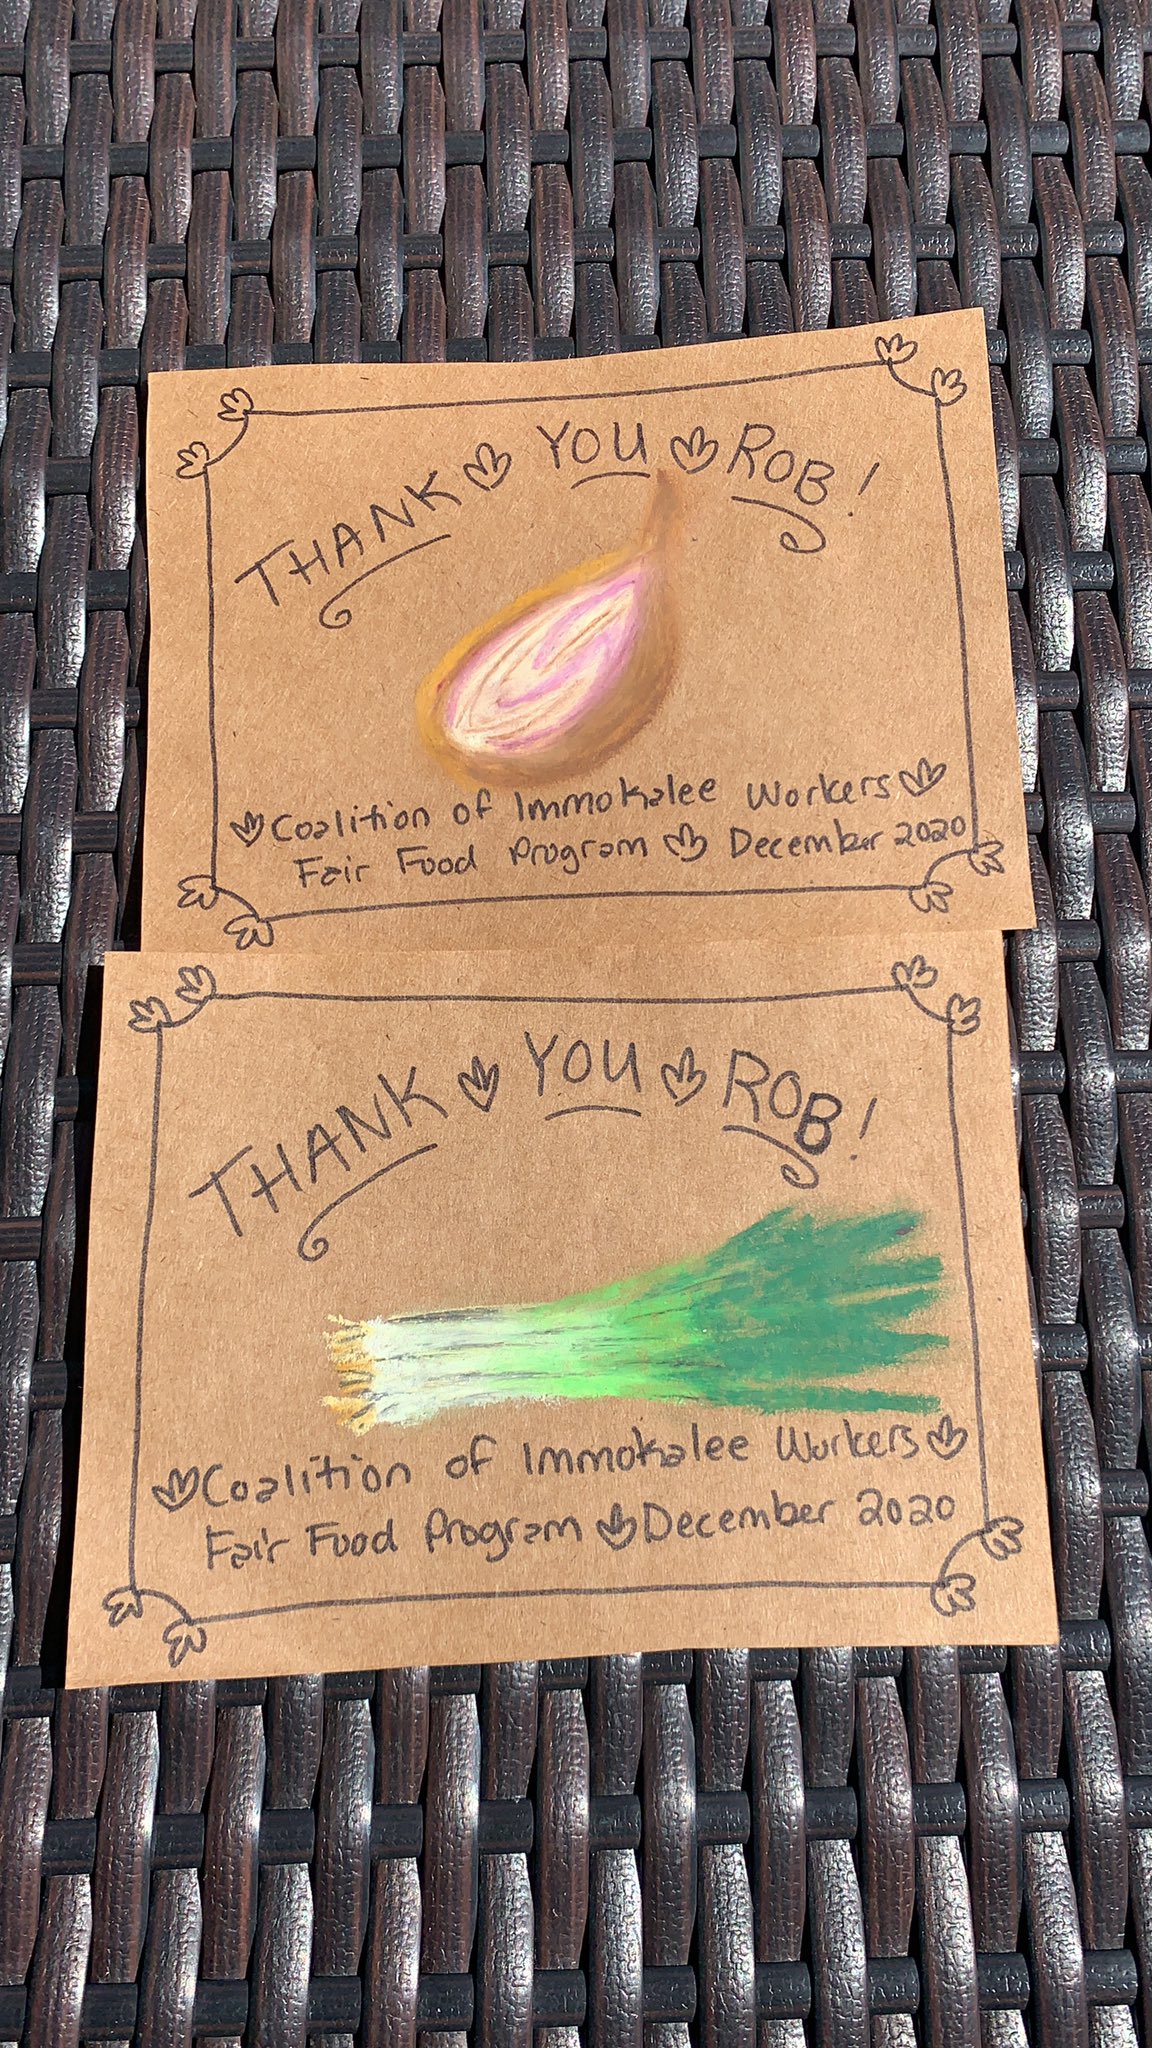 THANK YOU ROB!
Coalition of Immokalee Workers
Fair Food Program December 2020
THANK YOU ROB!
Coalition of Immokalee Workers
Fair Food Program December 2020